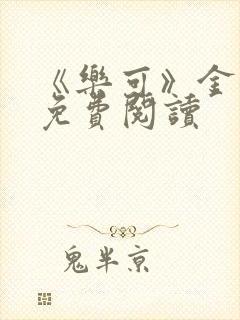 《樂可》全
免費閱讀
鬼半京